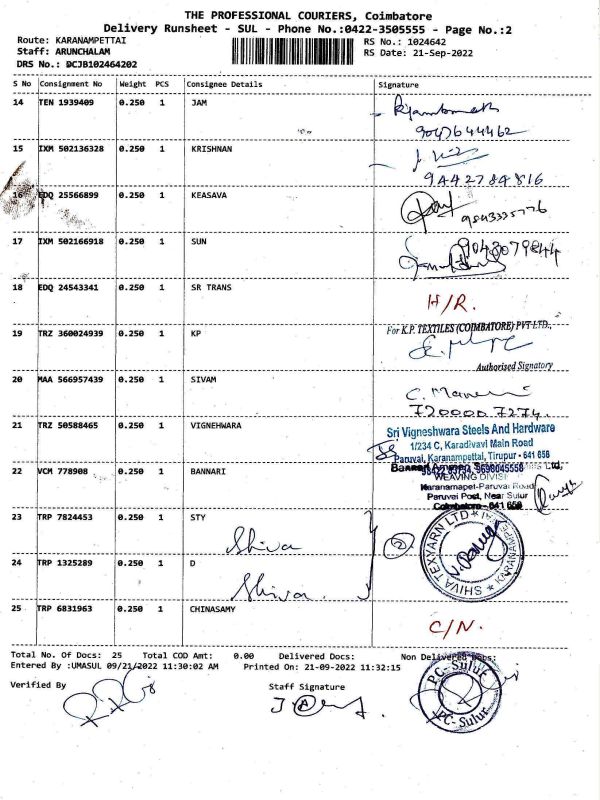 THE PROFESSIONAL COURIERS, Coimbatore
Delivery Runsheet - SUL - Phone No.:0422-3505555 - Page No.:2
Route: KARANAMPETTAI
RS No.: 1024642
Staff: ARUNCHALAM
RS Date: 21-Sep-2022
DRS No.: DCJB102464202
S No Consignment No Weight PCS Consignee Details Signature
14 TEN 1939409 0.250 1 JAM
9047644462
15 IXM 502136328 0.250 1 KRISHNAN
9442784816
16 EDQ 25566899 0.250 1 KEASAVA
9543335776
17 IXM 502166918 0.250 1 SUN
9043079844
18 EDQ 24543341 0.250 1 SR TRANS
H/R.
19 TRZ 360024939 0.250 1 KP
For K.P. TEXTILES (COIMBATORE) PVT LTD.,
Authorised Signatory
20 MAA 566957439 0.250 1 SIVAM
720000 7274.
21 TRZ 50588465 0.250 1 VIGNEHWARA
Sri Vigneshwara Steels And Hardware
1/234 C, Karadivavi Main Road
Paruvai, Karanampettai, Tirupur - 641 658
22 VCM 778908 0.250 1 BANNARI
WEAVING DIVISI
Karanamapet-Paruvai Road
Paruvai Post, Near Sulur
Coimbatore - 641 658
23 TRP 7824453 0.250 1 STY
Shiva
24 TRP 1325289 0.250 1 D
Shiva.
2
SHIVA TEXYARN LTD
KARANAMPE
25 TRP 6831963 0.250 1 CHINASAMY
C/N.
Total No. Of Docs: 25 Total COD Amt: 0.00 Delivered Docs: Non Delivered Docs:
Entered By :UMASUL 09/21/2022 11:30:02 AM Printed On: 21-09-2022 11:32:15
Verified By
Staff Signature
PC-Sulur
PC-Sulur